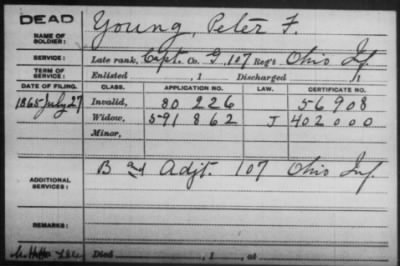 DEAD
NAME OF SOLDIER: Young, Peter F.
SERVICE: Late rank, Capt. Co. G, 107 Reg't Ohio Inf
TERM OF SERVICE: Enlisted , 1 Discharged , 1
DATE OF FILING. CLASS. APPLICATION NO. LAW. CERTIFICATE NO.
1865 July 27 Invalid, 80 226 56908
Widow, 591 862 J 402000
Minor,
ADDITIONAL SERVICES: B and Adjt. 107 Ohio Inf.
REMARKS:
Died , 1 , at